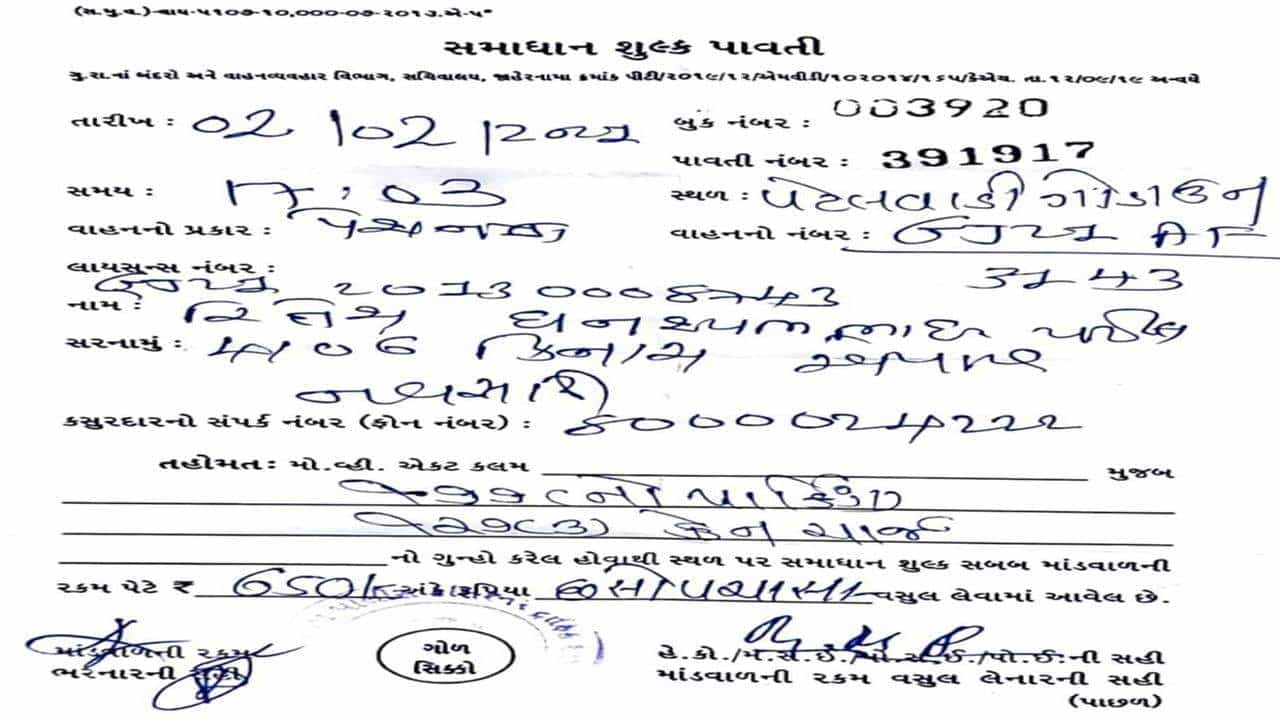 (સ.પુ.વ.)-વાય-૫૧૦૭-10,000-૦૭-૨૦૧૭.એ-૫"
સમાધાન શુલ્ક પાવતી
ગુ.રા.નાં બંદરો અને વાહનવ્યવહાર વિભાગ, સચિવાલય, જાહેરનામા ક્રમાંક પીટી/૨૦૧૯/૧૨/એમવીડી/૧૦૨૦૧૪/૧૬૫/કેએચ. તા.૧૨/૦૯/૧૯ અન્વયે
તારીખ : 02/02/
બુક નંબર : 003920
પાવતી નંબર : 391917
સમય : 17:03
સ્થળ : પટેલવાડી ગોડાઉન
વાહનનો પ્રકાર :
વાહનનો નંબર : GJ21 AF
3143
લાયસન્સ નંબર :
GJ21 20130008743
નામ : ઘનશ્યામભાઇ પટેલ
સરનામું : 406
નવસારી
કસુરદારનો સંપર્ક નંબર (ફોન નંબર) : 8000024222
તહોમત: મો.વ્હી. એકટ કલમ મુજબ
૧૭૭ નો પાર્કિંગ
ક્રેન ચાર્જ
નો ગુન્હો કરેલ હોવાથી સ્થળ પર સમાધાન શુલ્ક સબબ માંડવાળની
રકમ પેટે ₹ 650/- અંકે રૂપિયા છસો પચાસ વસુલ લેવામાં આવેલ છે.
માંડવાળની રકમ
ભરનારની સહી
ગોળ
સિક્કો
હે.કો./મ.સ.ઈ./પો.સ.ઈ./પો.ઈ.ની સહી
માંડવાળની રકમ વસુલ લેનારની સહી
(પાછળ)